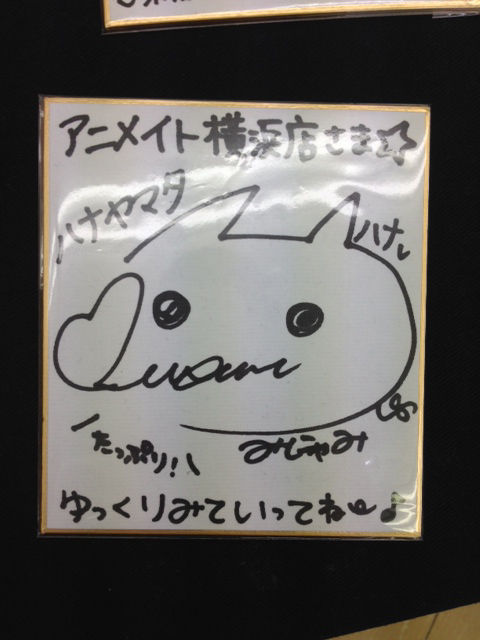 アニメイト横浜店さま
ハナヤマタ
ハナ
たっぷり!
みしゃみ
ゆっくりみていってねー♪